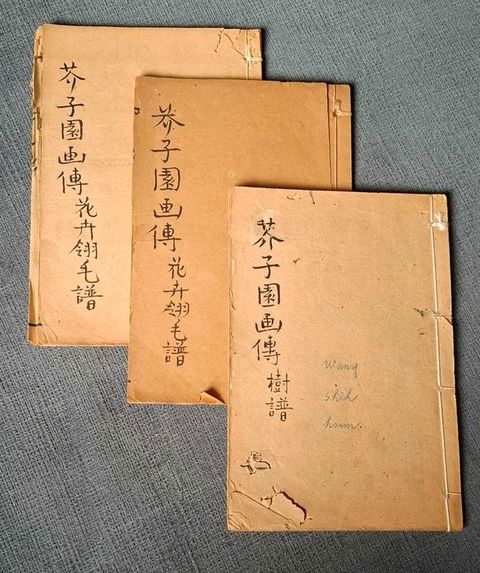 芥子園画傳花卉翎毛譜
芥子園画傳花卉翎毛譜
芥子園画傳樹譜
wang
shih
hsun.